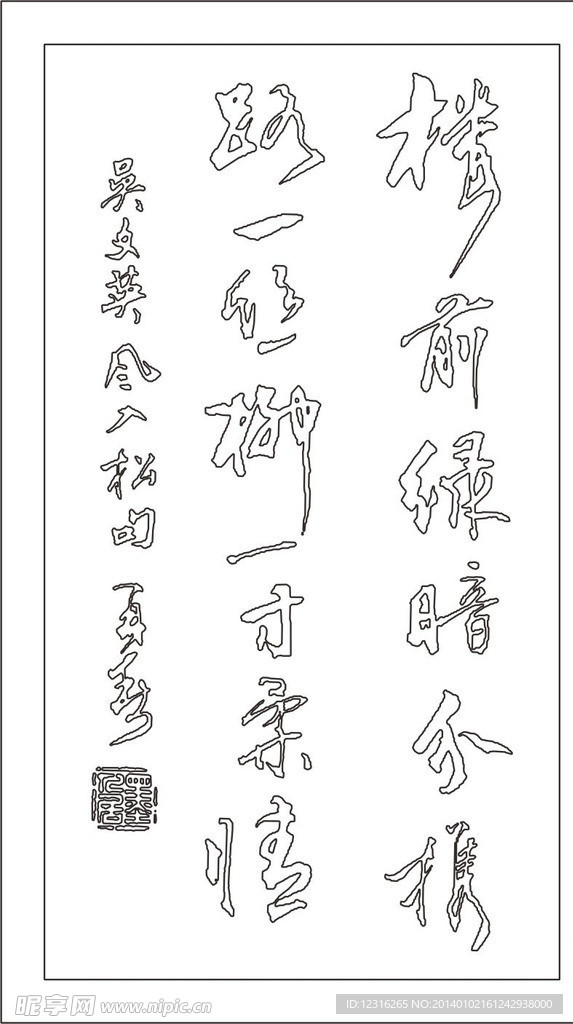 楼前绿暗分携
路一丝柳一寸柔情
吳文英风入松句
昵享网 www.nipic.cn
ID:12316265 NO:20140102161242938000